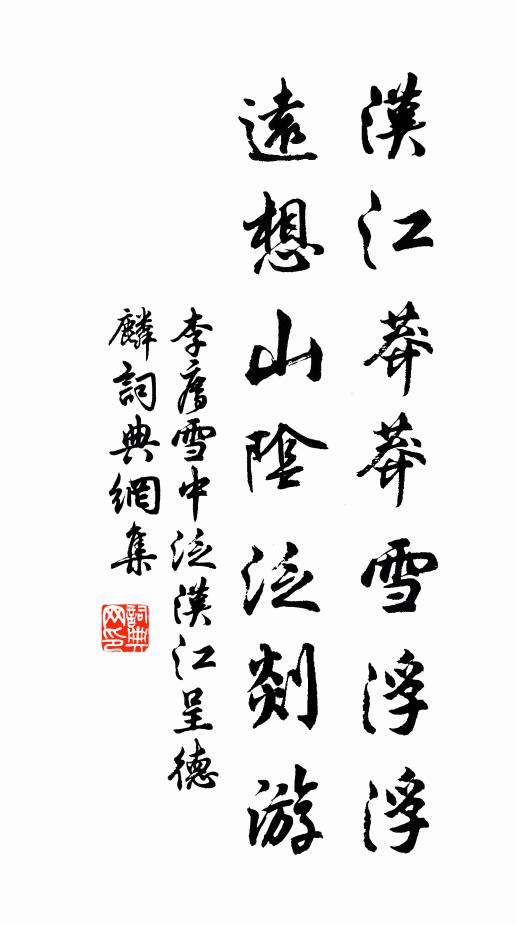 漢江莽莽雪浮浮
遠想山陰泛剡游
李廌雪中泛漢江呈德
麟詞典網集
詞典网印